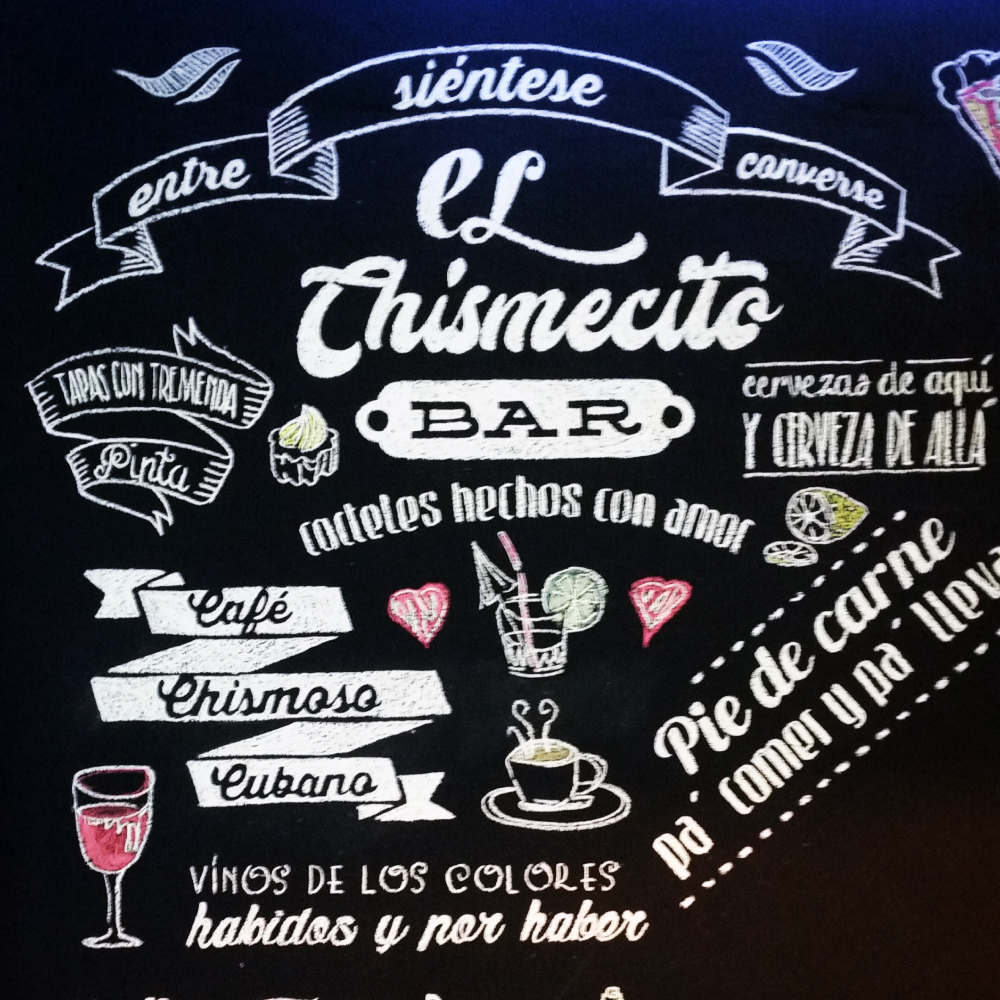 entre siéntese converse
eL
Chismecito
BAR
TAPAS CON TREMENDA
Pinta
cervezas de aquí
Y CERVEZA DE ALLÁ
cocteles hechos con amor
Café
Chismoso
Cubano
Pie de carne
pa' comer y pa'
VINOS DE LOS COLORES
habidos y por haber